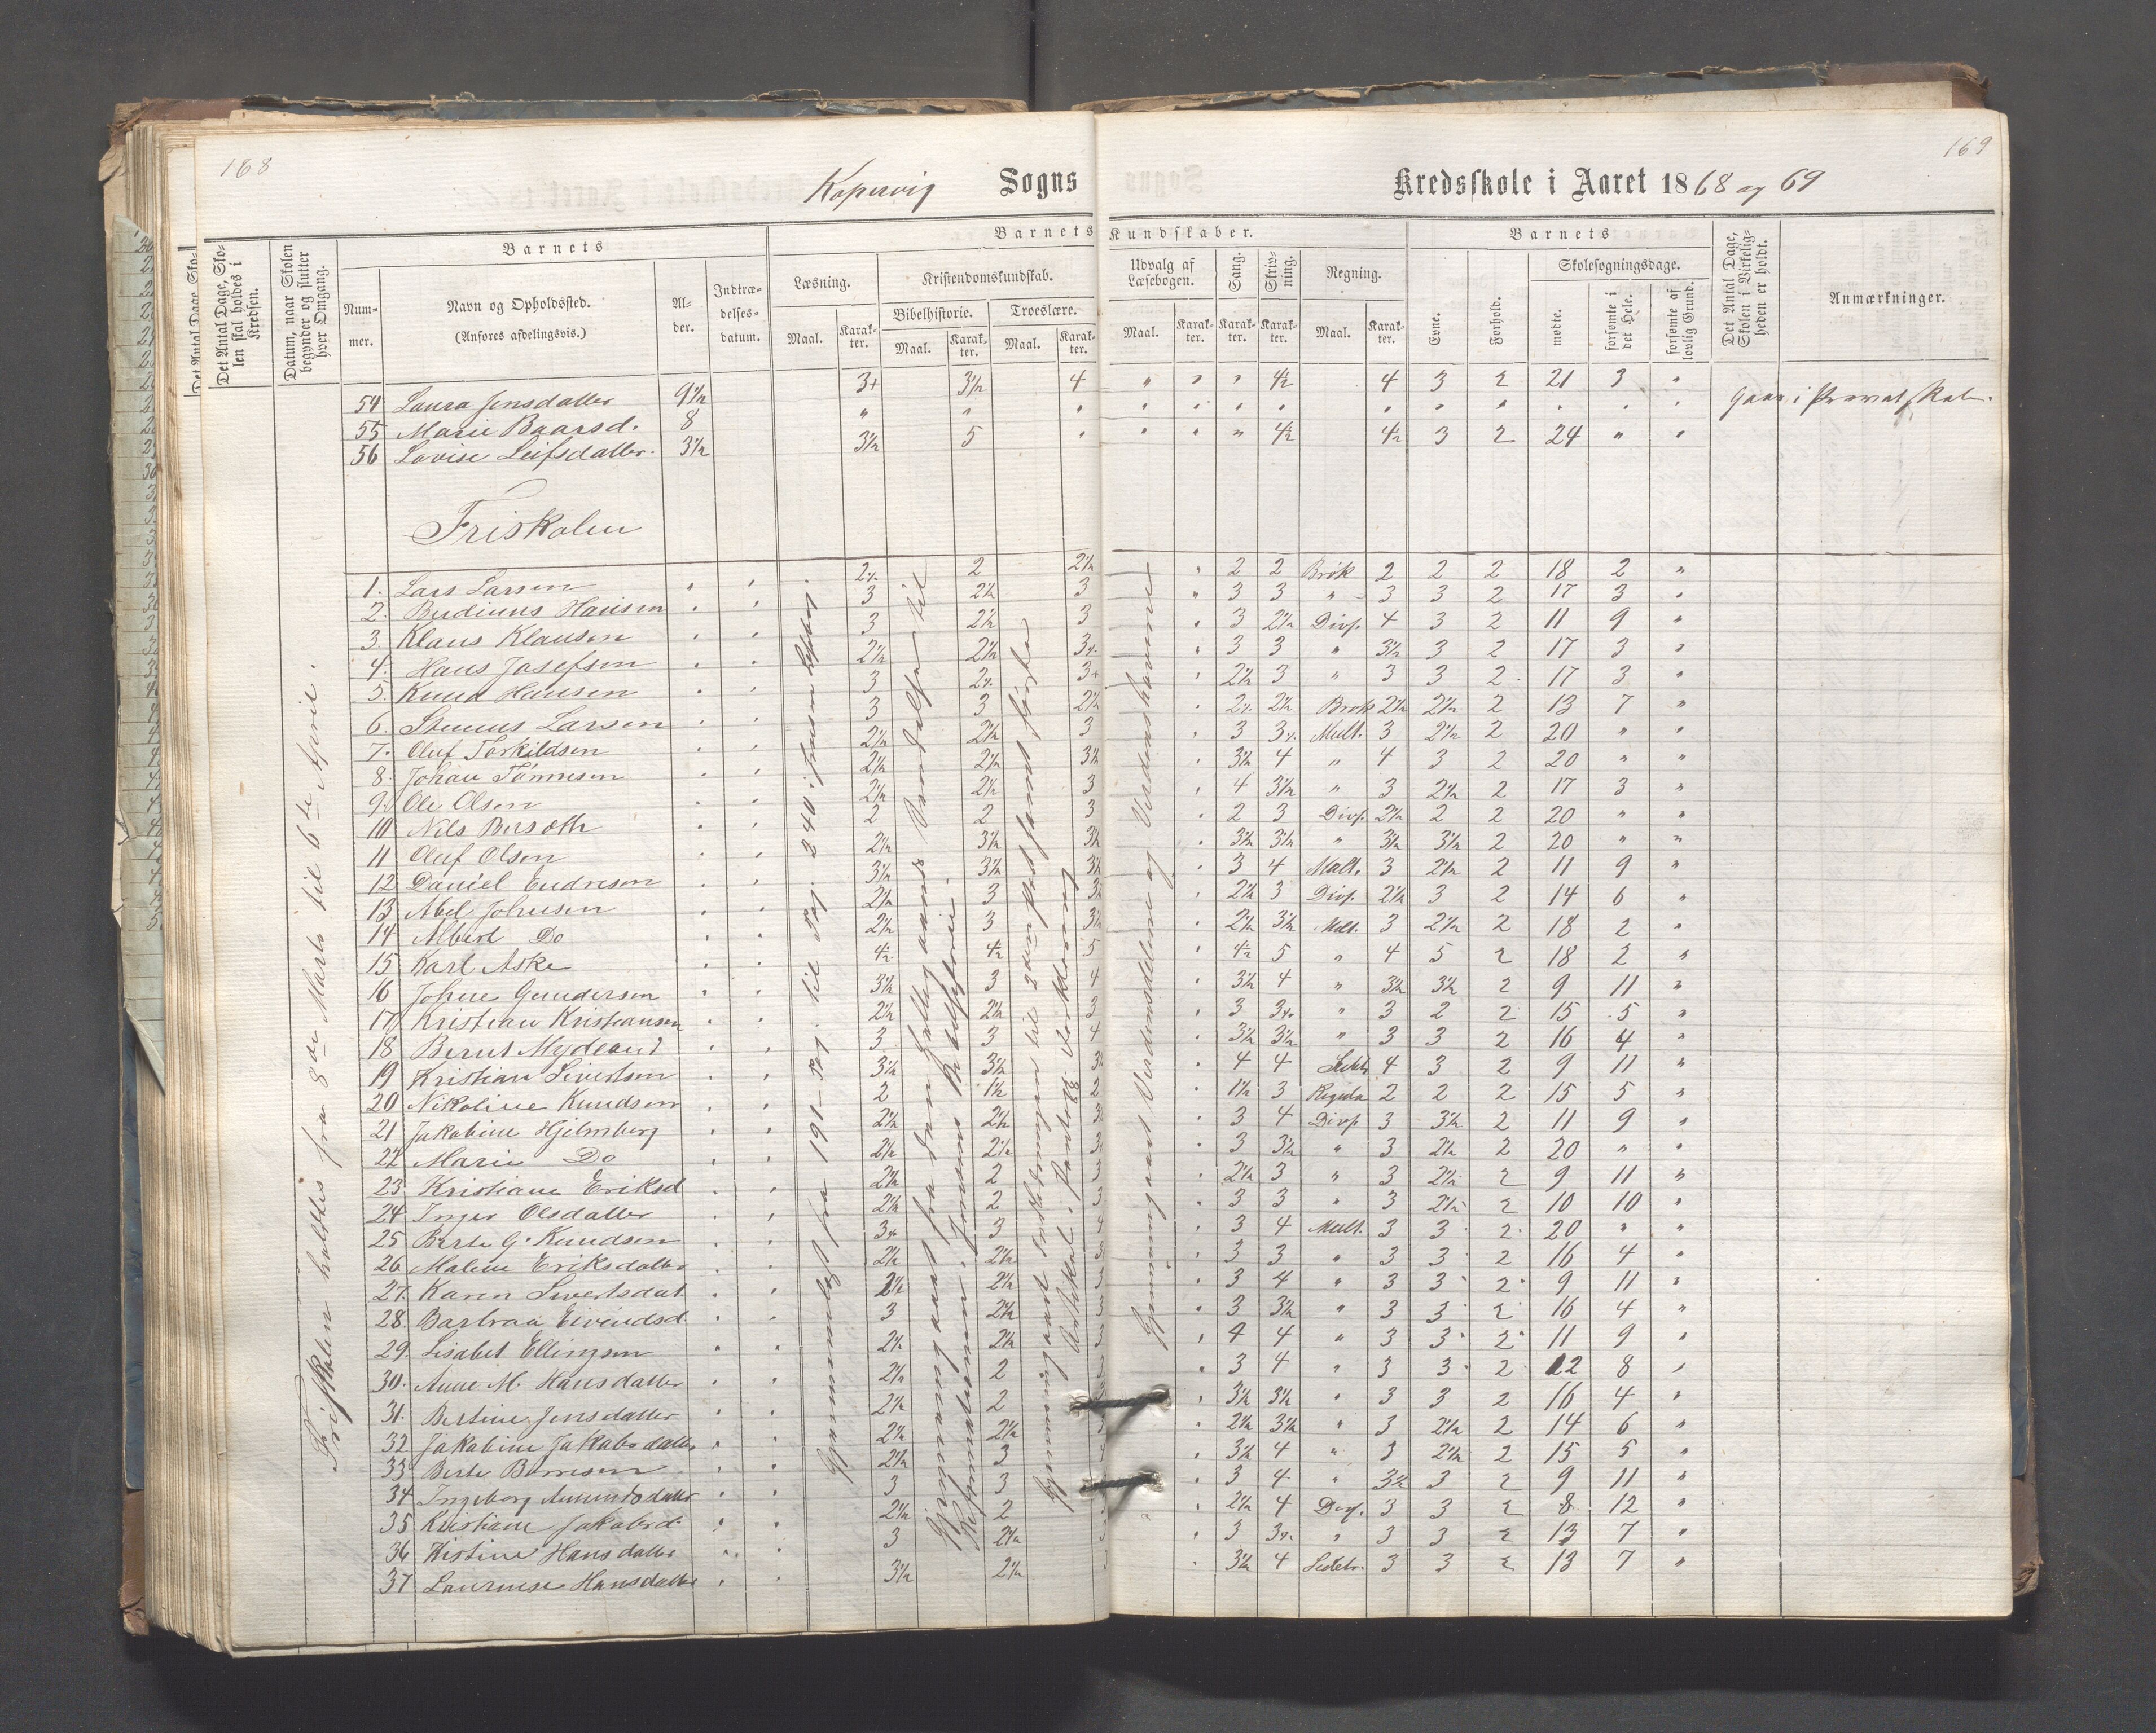 168
169
Kopervig Sogns Kredsskole i Aaret 1868 og 69
Det Antal Dage, Skolen skal holdes i Kredsen.
Datum, naar Skolen begynder og slutter hver Omgang.
Barnets
Num-
mer.
Navn og Opholdssted.
(Anføres afdelingsvis.)
Al-
der.
Indtræ-
delses-
datum.
Barnets Kundskaber.
Læsning.
Maal.
Karak-
ter.
Kristendomskundskab.
Bibelhistorie.
Maal.
Karak-
ter.
Troeslære.
Maal.
Karak-
ter.
Udvalg af
Læsebogen.
Maal.
Karak-
ter.
Sang.
Karak-
ter.
Skriv-
ning.
Karak-
ter.
Regning.
Maal.
Karak-
ter.
Barnets
Evne.
Forhold.
Skolesøgningsdage.
mødte.
forsømte i det Hele.
forsømte af lovlig Grund.
Det Antal Dage, Skolen i Virkeligheden er holdt.
Anmærkninger.
54 Laura Jensdatter 9 1/2 3+ 3 1/2 4 " " " 4 1/2 4 3 2 21 3 "
55 Marie Baarsd. 8 " " " " " " " " " " " " " Gaar i Privatskole.
56 Lovise Leifsdatter 3 1/2 3 1/2 5 " " " " 4 1/2 4 1/2 3 2 24 " "
Friskolen
Friskolen holdtes fra 8de Marts til 6te April.
1. Lars Larsen 2 2 2 Brøk 2 2 2 18 2 "
2. Berdinus Hansen 3 2 1/2 3 " 3 3 " 3 3 2 17 3 "
3. Klaus Klausen 3 2 1/2 3 " 3 2 1/2 Divs. 4 3 2 11 9 "
4. Hans Josefsen 2 1/2 2 1/2 " 3 3 " 3 1/2 3 2 17 3 "
5. Knud Hansen 3 3+ " 2 1/2 3 " 3 3 2 17 3 "
6. Larsen 3 3 2 1/2 2 1/2 Brøk 2 1/2 2 1/2 2 13 7 "
7. Oluf Torkildsen 2 1/2 2 1/2 3 3 Mult. 3 2 1/2 2 20 " "
8. Johan Tønnesen 2 1/2 2 1/2 3 1/2 3 1/2 4 " 4 3 2 20 " "
9. Ole Olsen 2 1/2 2 1/2 3 4 3 1/2 " 3 2 1/2 2 17 3 "
10 Nils 2 2 3 2 3 Divs. 2 1/2 2 2 20 " "
11 Oluf Olsen 2 1/2 3 1/2 3 1/2 3 1/2 3 1/2 " 3 1/2 3 1/2 2 20 " "
12 Daniel Endresen 3 1/2 3 1/2 3 1/2 3 4 Mult. 3 2 1/2 2 11 9 "
13 Abel Johnsen 2 1/2 3 2 1/2 3 Divs. 2 1/2 3 2 14 6 "
14 Albert Do 2 1/2 3 2 1/2 3 1/2 Mult. 3 2 1/2 2 18 2 "
15 Karl Aske 4 1/2 4 1/2 5 4 1/2 5 " 4 5 2 18 2 "
16 Johne Gundersen 3 1/2 3 4 3 1/2 4 " 3 1/2 3 1/2 2 9 11 "
17 Kristian Kristiansen 2 1/2 2 1/2 3 3 " 3 2 2 15 5 "
18 Bernt Mydland 3 3 4 3 1/2 3 1/2 " 3 3 2 16 4 "
19 Kristian Sivertsen 3 1/2 3 1/2 4 4 4 3 2 9 11 "
20 Nikoline Knudsen 2 1 1/2 2 1 1/2 3 Regula 2 2 2 15 5 "
21 Jakobine Hjelmberg 2 1/2 2 1/2 3 3 4 Divs 3 3 1/2 2 11 9 "
22 Marie Do 2 1/2 2 1/2 3 3 3 1/2 " 3 2 1/2 2 20 " "
23 Kristiane Eriksd 2 1/2 2 3 2 1/2 3 " 3 2 1/2 2 9 11 "
24 Inger Olsdatter 2 1/2 2 3 3 3 " 3 2 1/2 2 10 10 "
25 Berte G. Knudsen 3 4 3 4 Mult. 3 3 2 20 " "
26 Malene Eriksdatter 2 1/2 2 1/2 3 3 " 3 3 2 16 4 "
27. Karen Sivertsdat 2 1/2 2 1/2 3 4 " 3 3 2 9 11 "
28. Barbraa Eivindsd 3 2 1/2 3 3 1/2 " 3 3 2 16 4 "
29. Lisabet Ellingsen 2 1/2 4 4 " 3 3 2 11 9 "
30. Anne M. Hansdatter 2 1/2 2 3 4 " 3 3 2 12 8 "
31. Bertine Jensdatter 2 1/2 2 3 1/2 3 1/2 " 3 3 2 16 4 "
32 Jakobine Jakobsdatter 2 1/2 2 1/2 2 1/2 3 1/2 " 3 2 1/2 2 14 6 "
33 Berte 2 1/2 3 3 1/2 4 " 3 2 1/2 2 15 5 "
34 Ingeborg Amundsdatter 3 3 3 4 " 3 1/2 3 2 9 11 "
35 Kristiane Jakobsd. 2 1/2 2 2 1/2 4 Divs. 3 3 2 8 12 "
36 Kistine Hansdatter 3 2 1/2 3 " 3 3 2 13 7 "
37 Laurense Hansdatter 3 1/2 2 1/2 3 1/2 4 3 3 2 13 7 "
Gjennemlæst fra 191 Pag. til Pag. 240 i Jensens Læsebog
Gjennemgaaet fra den Hellig Aands Reformationen i Jensens Bibelhistorie.
Gjennemgaaet Artikel i Pontopp. Forklaring
Gjennemgaaet Verdensdelene og Verdenshavene